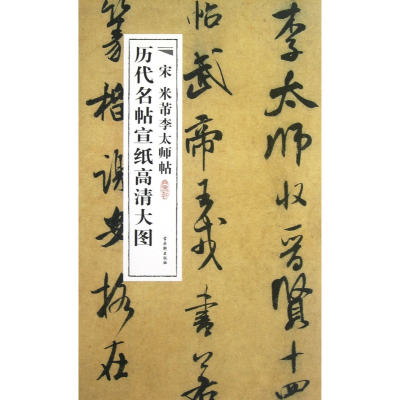 李太師收晉賢十四
帖武帝王戎書若
宋 米芾李太师帖
历代名帖宣纸高清大图
篆籀謝安格在